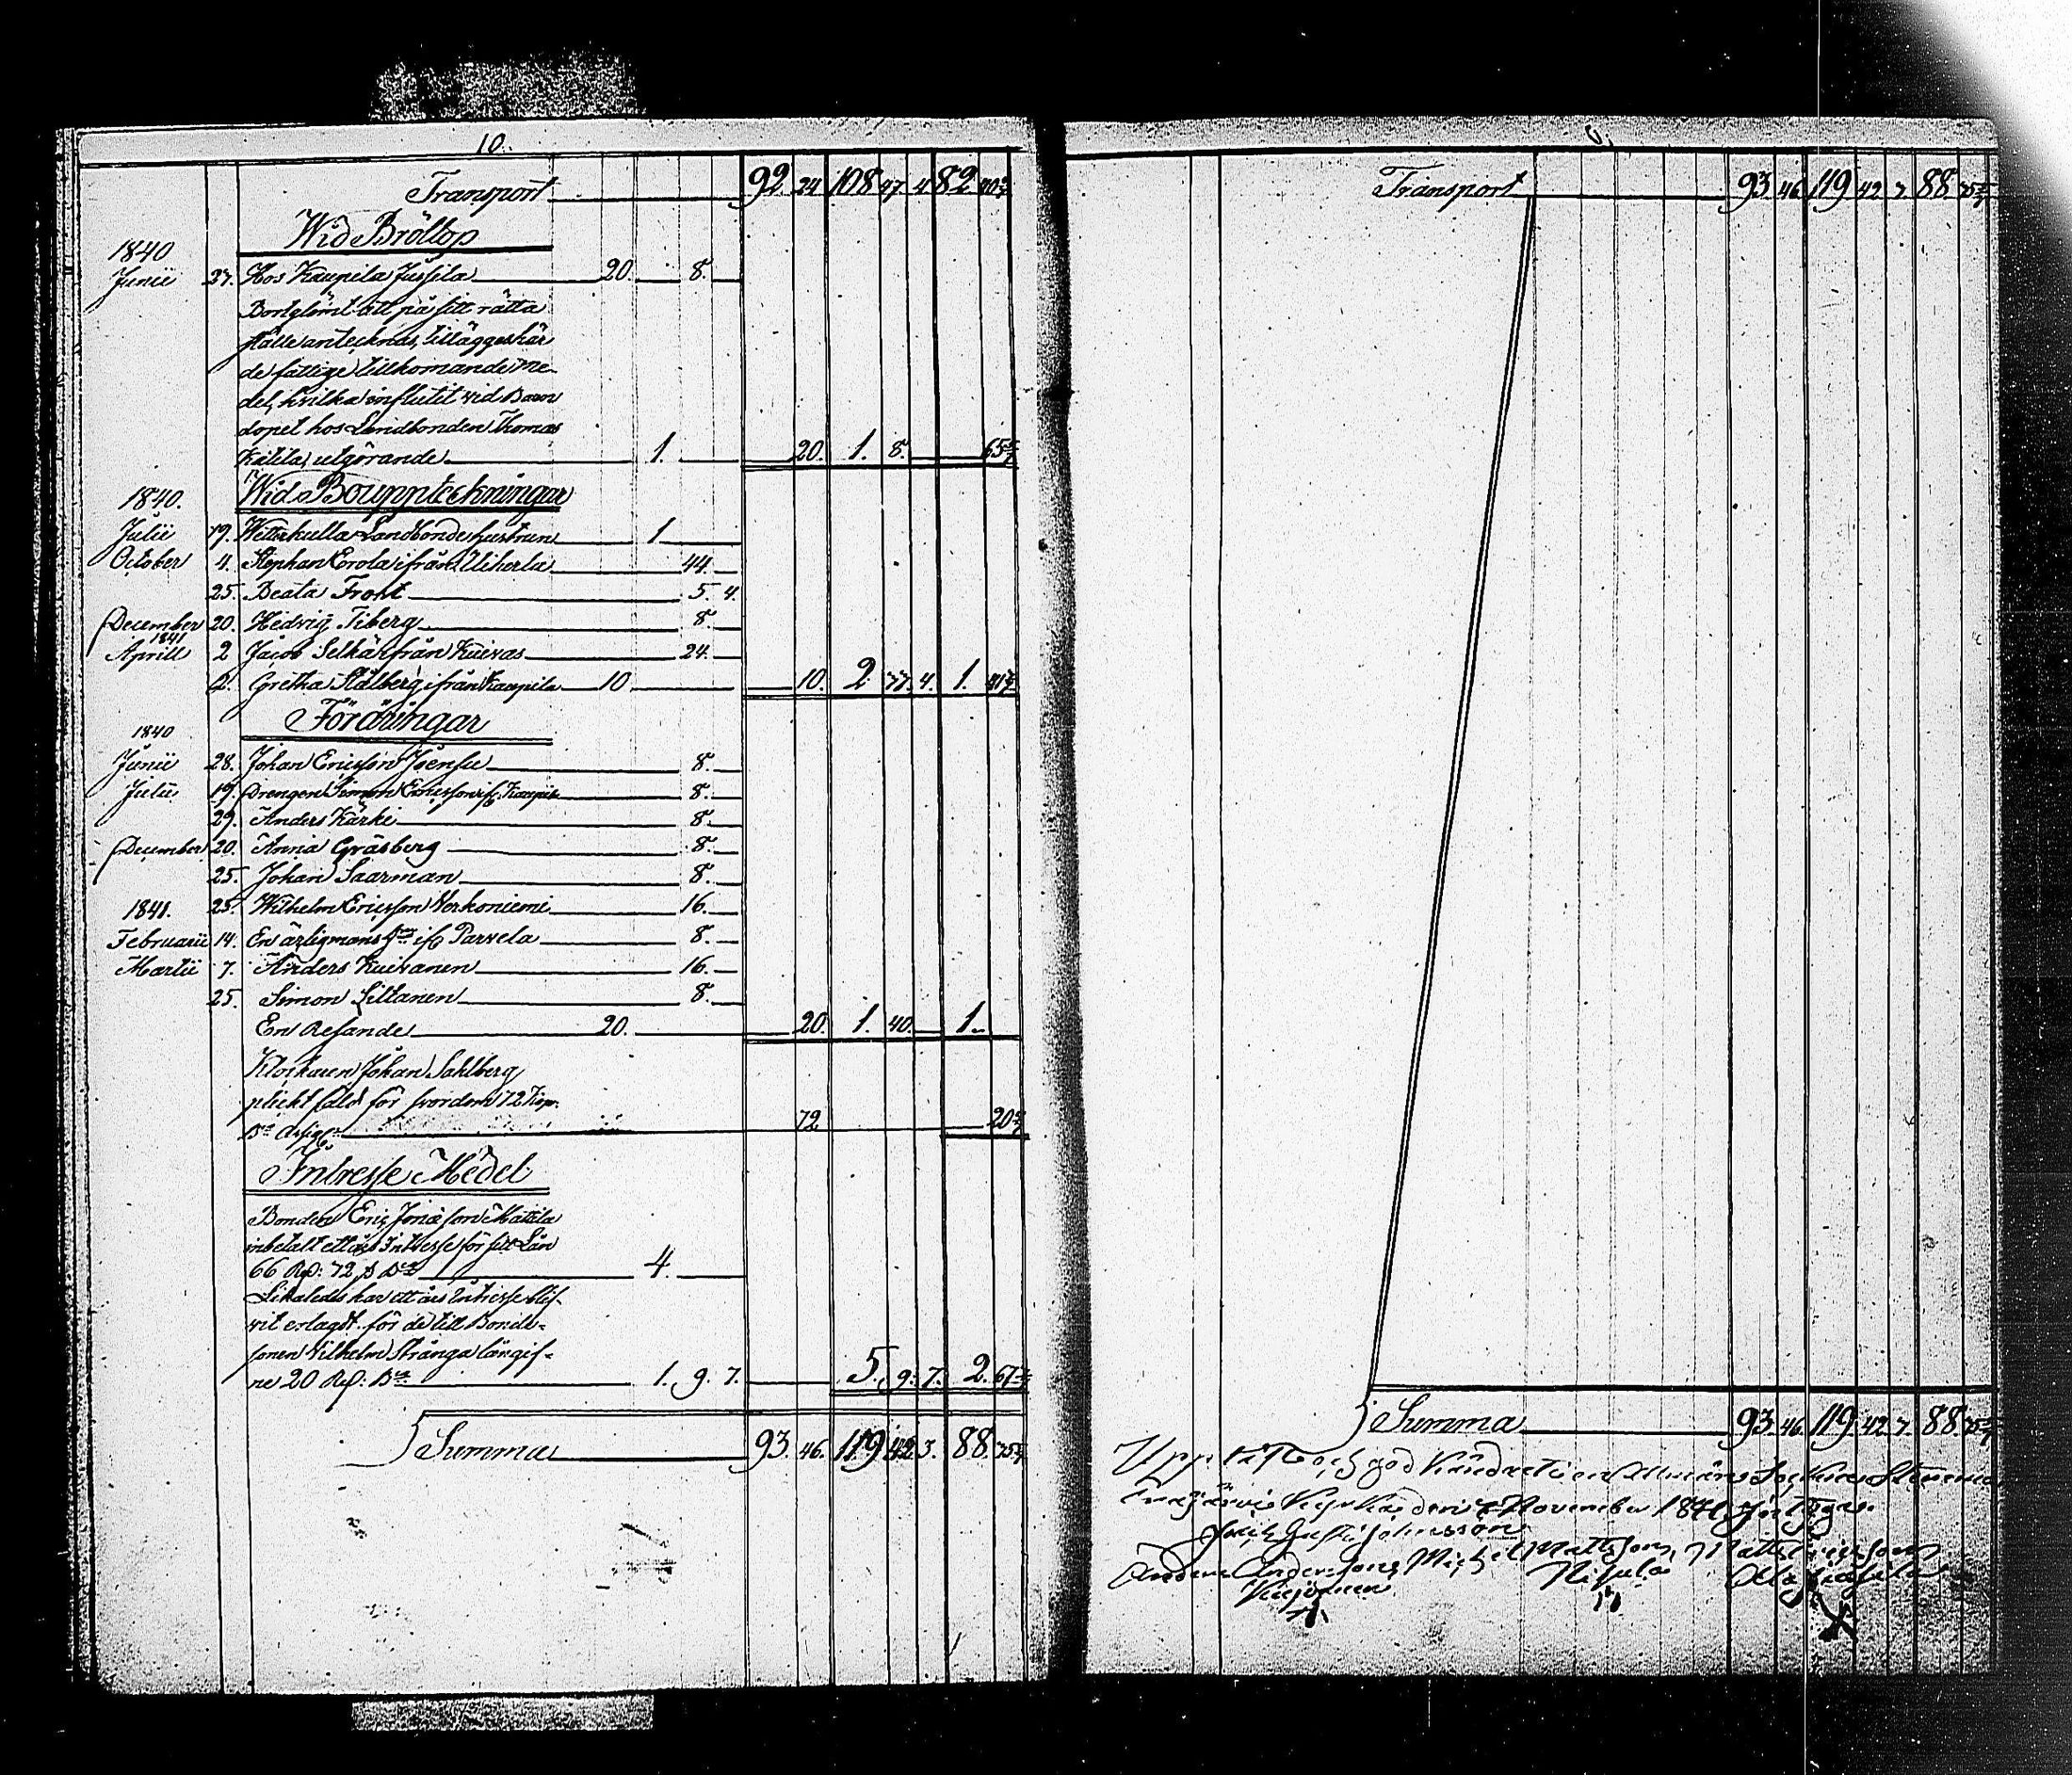 10.
Transport 92. 24. 108 47. 4 82. 40 2/7
Wid Bröllop
1840
Junii 27. Hos Kaupila Jussila 20. 8.
Bortglömt att på sitt rätta
ställe antecknas, tillägges här
de fattige tillkomande me-
del, hvilka influtit vid Barn
dopet hos Landbonden Thomas
Katila, utgörande 1. 20. 1. 8. 65 5/7
Wid Bouppteckningar
1840.
Julii 19. Landbonde hustrun 1
October 4. Stephan Erola ifrån 44.
25. Beata Front 5. 4.
December 20. Hedvig Tiberg 8.
1841
Aprill 2 Jacob från Kuivas 24.
2. Gretha Stålberg ifrån Kaupila 10 10. 2 77. 4. 1.
Föräringar
1840
Junii 28. Johan Ericsson Joensu 8.
Julii 19. Drengen Simon Ericsson if. Kaupila 8.
29. Anders Kärki 8.
December 20. Anna Gräsberg 8.
25. Johan Saarman 8.
25. Wilhelm Ericsson Verkoniemi 16.
1841.
Februarii 14. En ärligmans if Parvela 8.
Martii 7. Anders Kuivanen 16.
25. Simon Siltanen 8.
En Resande 20. 20. 1. 40. 1.
Klockaren Johan Sahlberg
pliktfäld för svordom 72 Kop.
72 20 4/7
Intresse Medel
Bonden Eric Jonasson Mattila
inbetalt ett års Intresse för sitt Lån
66 Rub: 72 4.
Likaledes har ett års Intresse blif-
vit erlagdt för de till Bonde-
sonen Wilhelm Stränga långif-
ne 20 Rub: 1. 9. 7. 5. 9. 7. 2. 67
Summa 93. 46. 119 42 3. 88. 75
Transport 93. 46. 119. 42 7. 88. 75
Summa 93. 46. 119. 42 7. 88. 75
Uppläst och god Känd uti Allmän Socknes Stemma
Kyrka den November 1841, Intyga.
Johnsson
Anders Andersson, Michel Mattsson, Matts Ericsson
Nisula